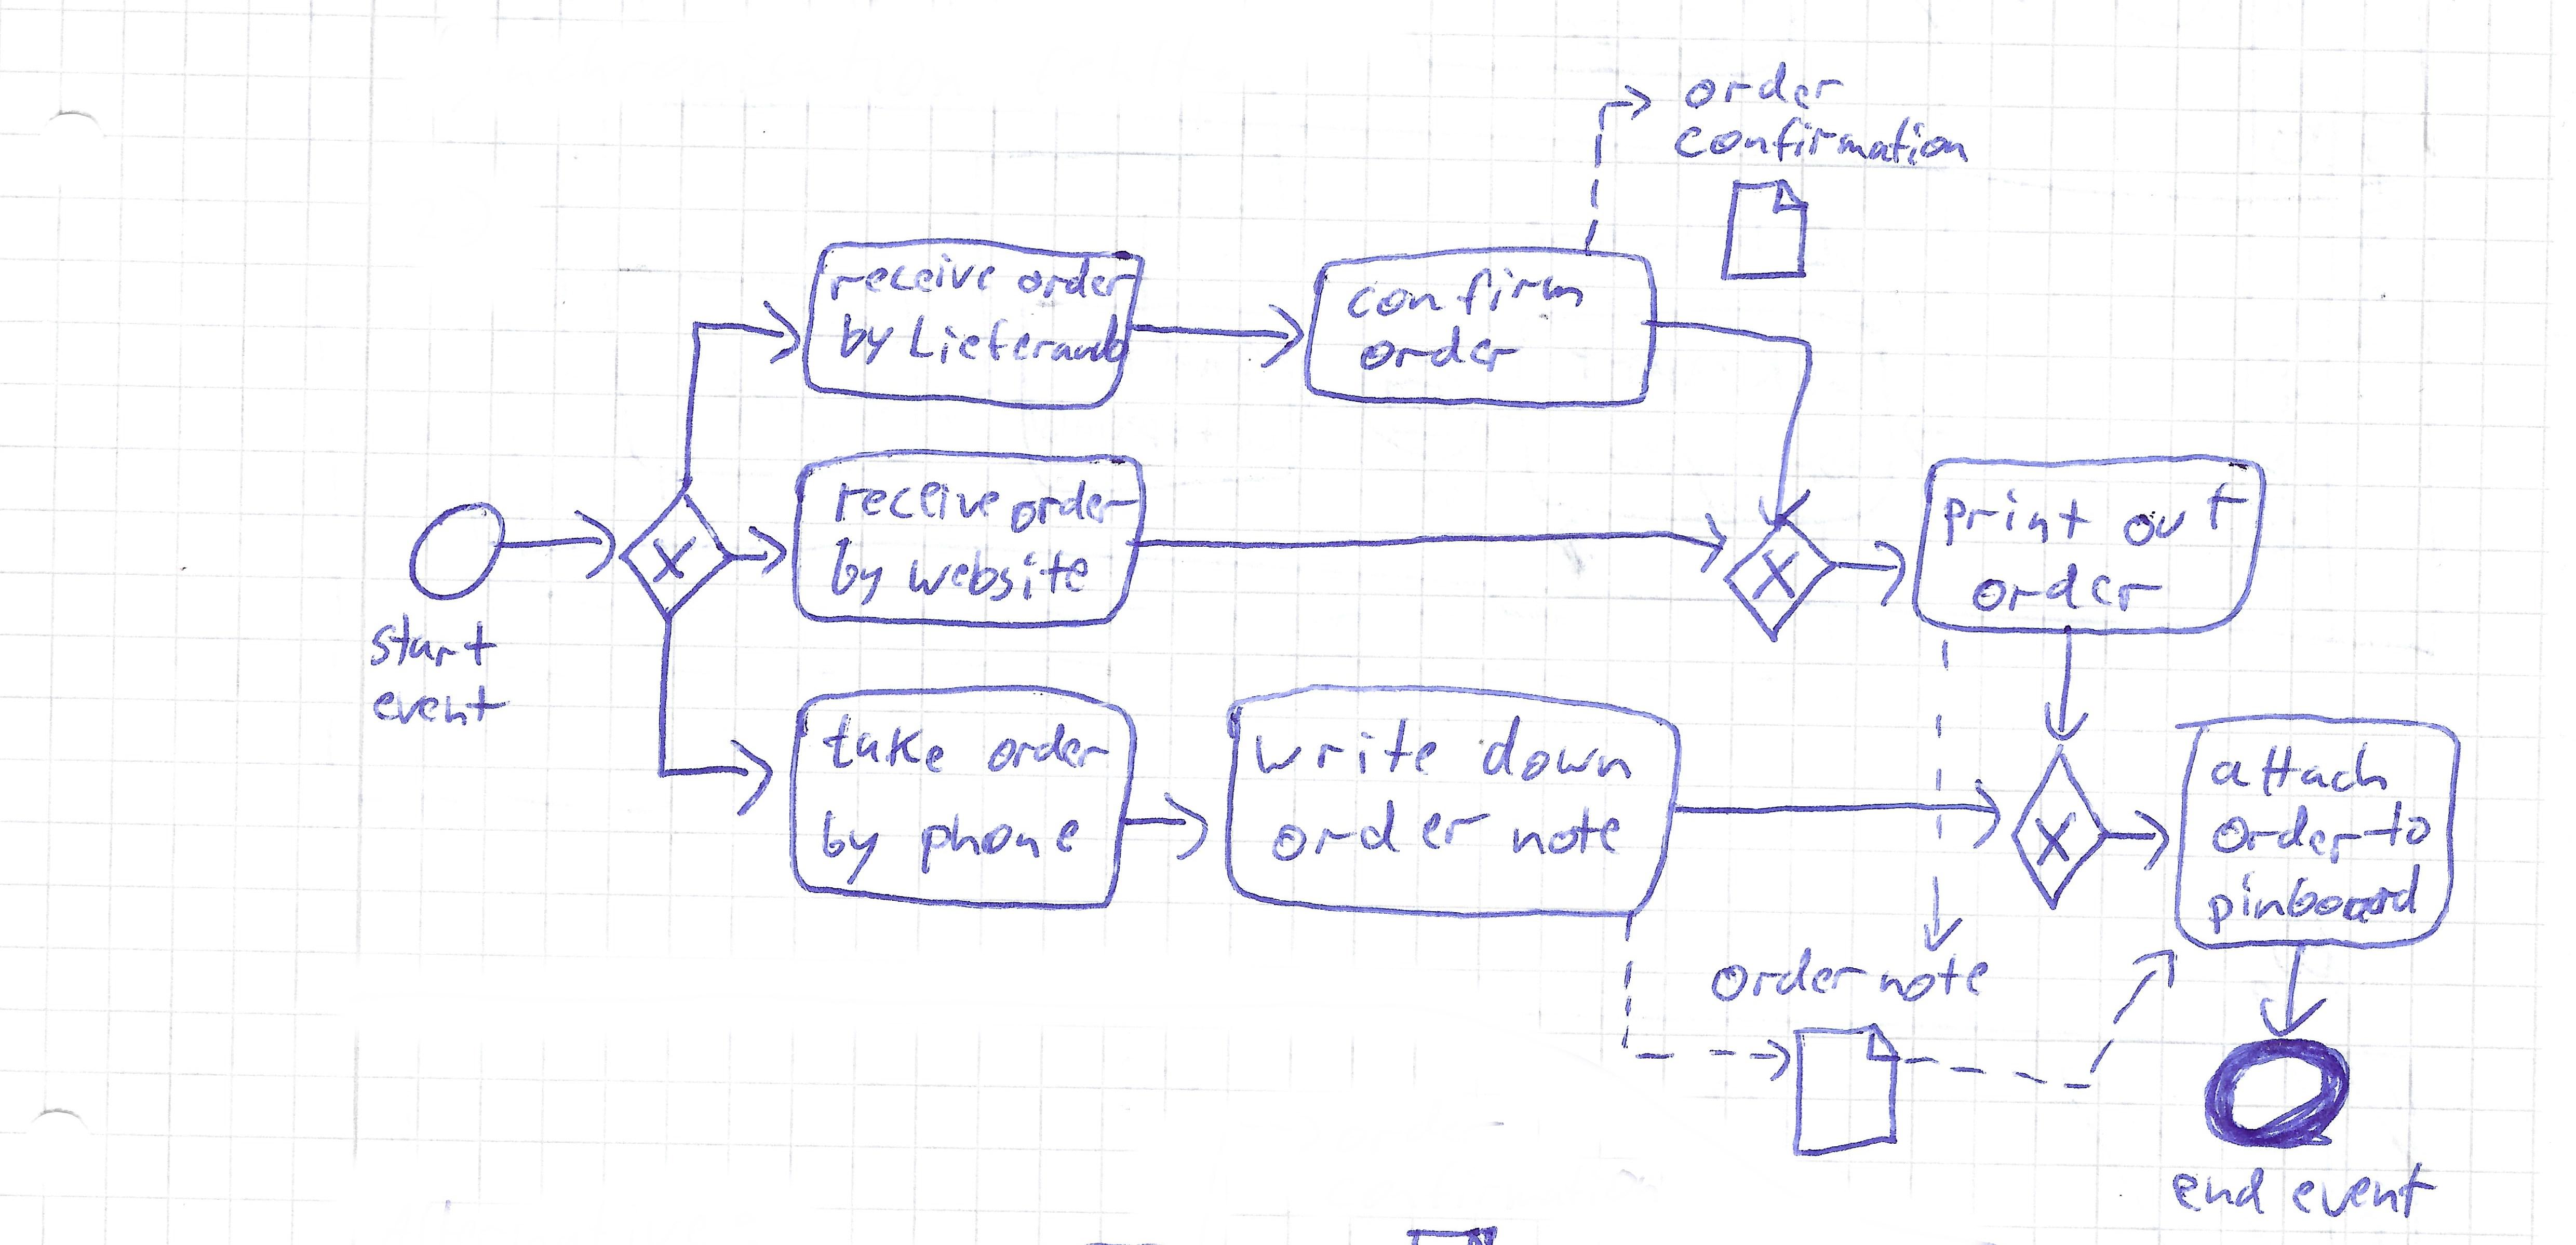 order
confirmation
receive order
by Lieferando
confirm
order
receive order
by website
X
X
print out
order
start
event
take order
by phone
write down
order note
X
attach
order to
pinboard
order note
end event